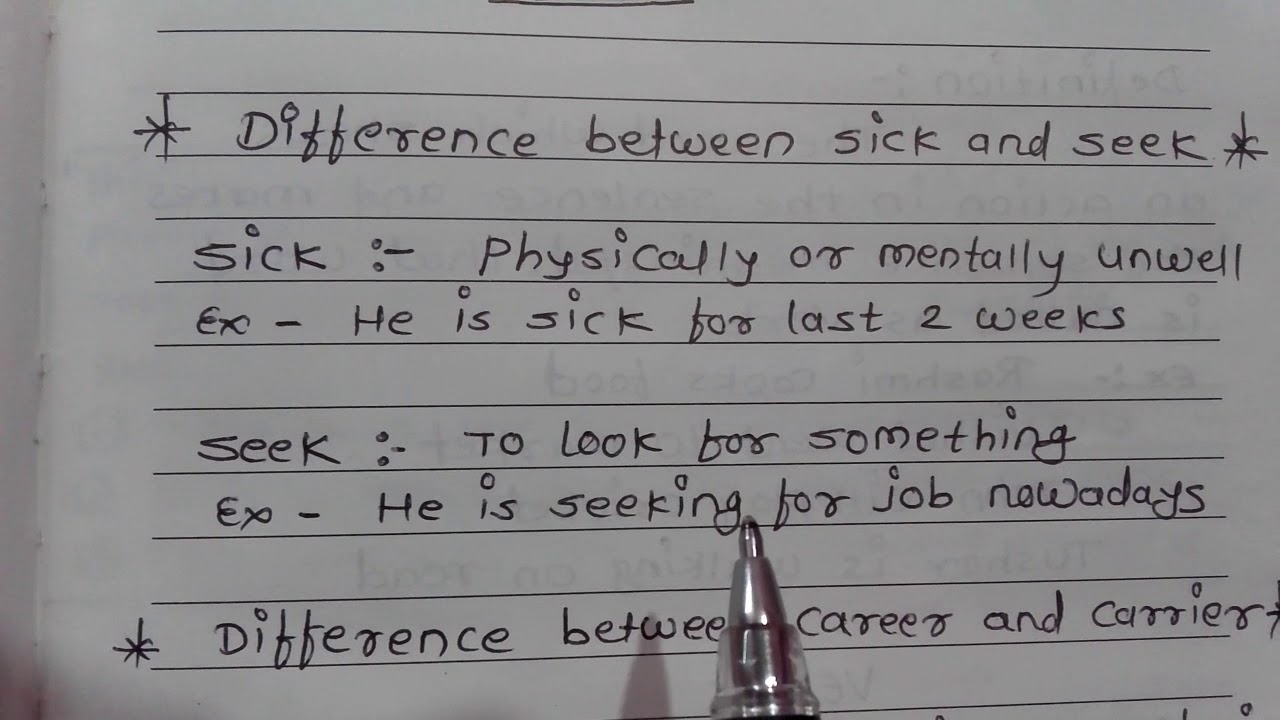 * Difference between sick and seek *
Sick :- Physically or mentally unwell
Ex - He is sick for last 2 weeks
Seek :- To look for something
Ex - He is seeking for job nowadays
* Difference between career and carrier *